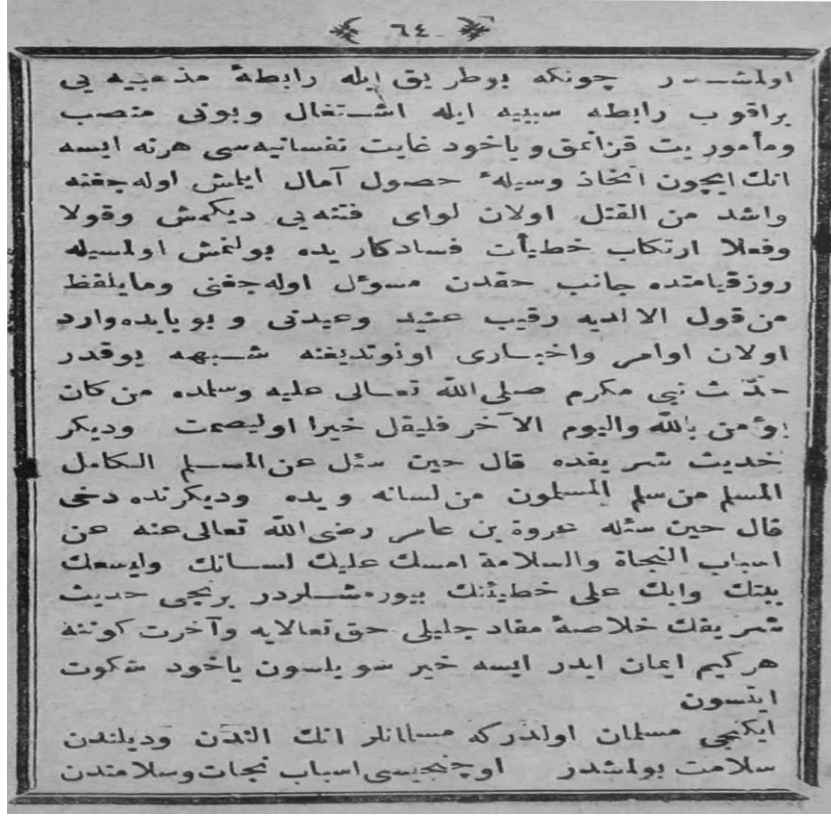 ٦٤
اولمشدر چونکه بوطریق ایله رابطۀ مذهبیه یی
براقوب رابطه سببیه ایله اشتغال وبونی منصب
ومأموریت قزانمق ویاخود غایت نفسانیه سی هرنه ایسه
انك ایچون اتخاذ وسیلهٔ حصول آمال ایلمش اوله جغنه
واشد من القتل اولان لوای فتنه یی دیکمش وقولا
وفعلا ارتکاب خطیأت فسادکاریده بولنمش اولمسیله
روزقیامتده جانب حقدن مسوٴل اوله جغنی ومایلفظ
من قول الا لدیه رقیب عتید وعیدنی و بوبابده وارد
اولان اوامر واخباری اونوتدیغنه شبهه یوقدر
حدّث نبی مکرم صلی الله تعالی علیه وسلمده من کان
یؤمن بالله والیوم الآخر فلیقل خیرا اولیصمت ودیکر
حدیث شریفده قال حین سئل عن المسلم الکامل
المسلم من سلم المسلمون من لسانه ویده ودیکرنده دخی
قال حین سئله عروة بن عامر رضی الله تعالی عنه عن
اسباب النجاة والسلامة امسك علیك لسانك ولیسعك
بیتك وابك علی خطیئتك بیورمشلردر برنجی حدیث
شریفك خلاصۀ مفاد جلیلی حق تعالایه وآخرت کوننه
هرکیم ایمان ایدر ایسه خیر سویلسون یاخود سکوت
ایتسون
ایکنجی مسلمان اولدرکه مسلمانلر انك الندن ودیلندن
سلامت بولمشدر اوچنجیسی اسباب نجات وسلامتدن